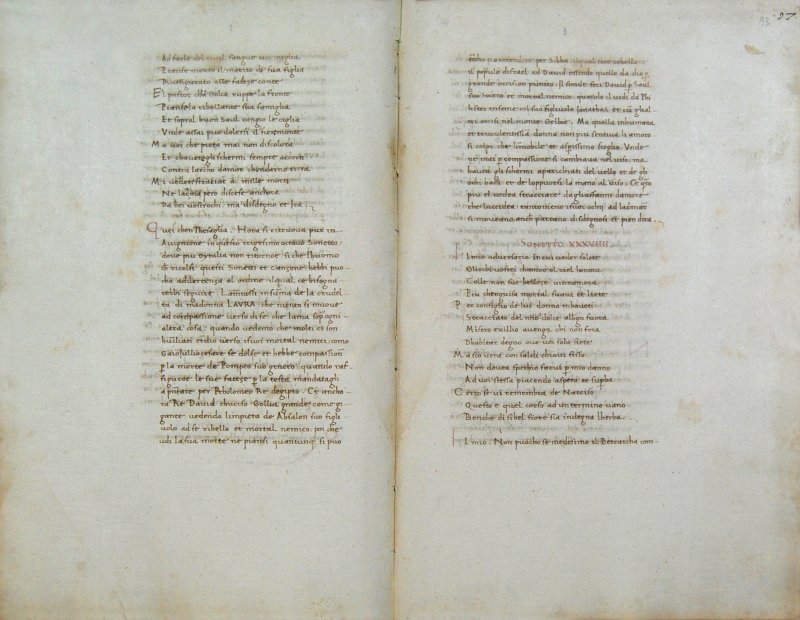 Ad farla del civil sangue vermiglia
Pianse morto il marito di sua figlia
Raffigurato alle fateze conte
El pastor cha Golia ruppe la fronte
Pianse la ribellante sua famiglia
Et sopral buon Saul cangio le ciglia
Unde assai puo dolersi il fier monte
Ma voi che pieta mai non discolora
Et chavete gli schermi sempre accorti
Contra larcho damor chendarno tira
Mi vedete stratiar a mille morti
Ne lacrima pero discese anchora
Da bei vostrochi ma disdegno et ira
Quei chen Thesaglia. Hora si ritruova pur in
Avignione in questo trigesimo octavo Sonetto
dove piu Italia non ritornoe si che lhuomo
di ricolsi questi Sonetti et Canzone hebbi puo-
cha advertenza al ordine alqual ce bisogna-
rebbi seguire. Lamtassi insuma de la crudel-
ta di madonna LAURA, che niente si muove
ad compassione verso di se che lama sopogni
altra cosa, quando vedento che molti ei son
huiliati etdio verso isuoi mortal nemici, como
Gaio Iullio cesare se dolse et hebbe compassion
p la morte de Pompeo suo genero quando raf-
figuroe le sue fateze p la testa mandatagli
apntate per Ptholomeo Re degipto. Et ancho-
ra Re David chucise Gollia grande come gi-
gante vedendo limpieta de Absalon suo figli
volo ad se ribello et mortal nemico, poi che
udi la sua morte ne piansi quantunq si puo
etdio p intendere per Sibba alqual fece rebellare
il populo disrael ad David essendo quello da dio p
grande occision punito. Il simile feci David p Saul
suo Socero et mortal nemico quando il vidi da Phi
listei insieme col suo figliuolo Jonathas et cu ghal-
tri occisi nel monte Gelboe. Ma quella inhumana
et truculentissia donna non piu sentiva li amoro
si colpi che limobile et asprissimo scoglio. Unde
ne mai p compassione si cambiava nel viso, ma
haveva gli schermi aparichiati del vello et de gli
ochi bassi et de lopporvisi la mano al viso. Ce gto
piu el vedea stracciare da gli affanni damore
che lucidea tantomeno isuoi ochij ad lacrimar
si moveano, anci pareano disdegnosi et pien dira.
SONETTO XXXVIIII
Il mio adversario in cui veder solete
Gliochi vostri chamore el ciel honora
Colle non sue belleze vinnamora
Piu chenguisa mortal suavi et liete
Per consiglio de lui donna mhaveti
Scacciato del mio dolce albgo fuora
Misero exillio avenga chi non fora
Dhabitar degno ove voi sola siete
Ma sio vera con saldi chiovi fisso
Non dovea specchio farvi p mio danno
Ad voi stessa piacendo aspera et supba
Certo se vi remembra de Narciso
Questo e quel corso ad un termino vano
Benche di si bel fiore sia indegna lherba
Il mio. Non puocho se medesimo al Petrarcha com-